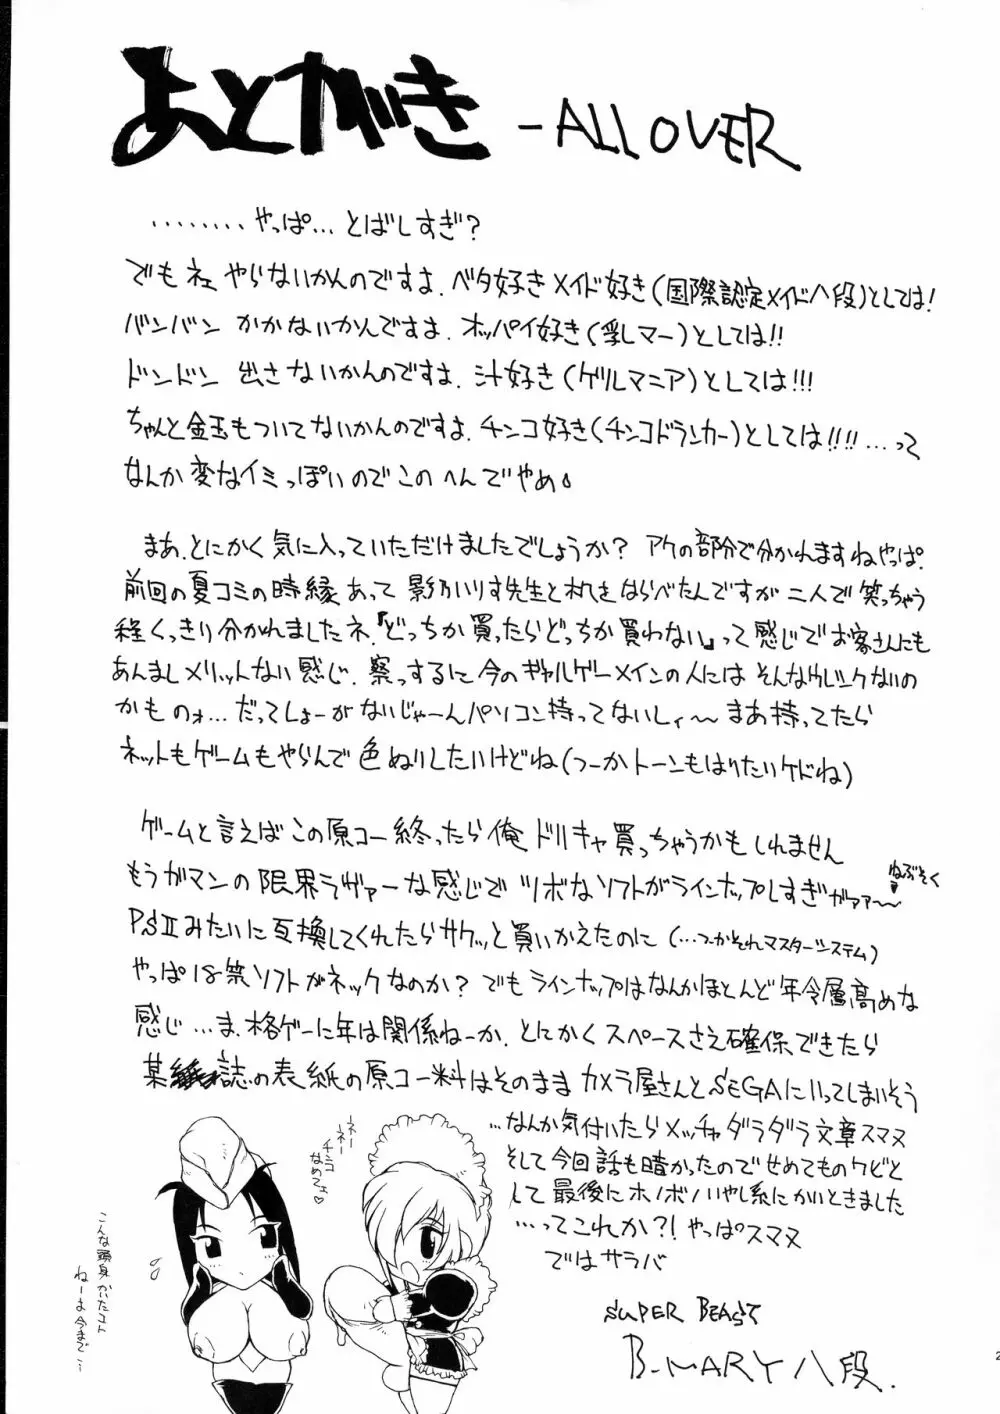 あとがき -ALL OVER
........やっぱ...とばしすぎ?
でもネェ やらないかんのですよ.ベタ好きメイド好き(国際認定メイド八段)としては!
バンバン かかないかんですよ.オッパイ好き(乳しマー)としては!!
ドンドン 出さないかんのですよ.汁好き(ゲリルマニア)としては!!!
ちゃんと金玉もついてないかんのですよ.チンコ好き(チンコドランカー)としては!!!!...って
なんか変なイミっぽいのでこのへんでやめ。
まあ.とにかく気に入っていただけましたでしょうか? アケの部分で分かれますねやっぱ.
前回の夏コミの時縁あって 影乃いりす先生と机をならべたんですが二人で笑っちゃう
程くっきり分かれましたネ.『どっちか買ったらどっちか買わない』って感じでお客さんにも
あんましメリットない感じ.察っするに今のギャルゲーメインの人にはそんなウレシクないの
かもノォ...だってしょーがないじゃーんパソコン持ってないしィ〜まあ持ってたら
ネットもゲームもやらんで色ぬりしたいけどね(つーかトーンもはりたいケドね)
ゲームと言えばこの原コー終ったら俺ドリキャ買っちゃうかもしれません
もうガマンの限界ラヴァーな感じでツボなソフトがラインナップしすぎがァァ〜
ねぶそく
PSⅡみたいに互換してくれたらサクッと買いかえたのに(...つーかそれマスターシステム)
やっぱ18禁ソフトがネックなのか? でもラインナップはなんかほとんど年令層高めな
感じ...ま.格ゲーに年は関係ねーか.とにかくスペースさえ確保できたら
某誌の表紙の原コー料はそのままカメラ屋さんとSEGAにいってしまいそう
...なんか気付いたらメッチャダラダラ文章スマヌ
そして今回話も暗かったのでせめてものケビと
して最後にホノボノいやし系にかいときました
...ってこれか?!やっぱスマヌ
ではサラバ
SUPER BEAST
B-MARY八段.
ネーネー
チンコなめてェ♡
こんな頭身かいたコト
ねーよ今まで...
2